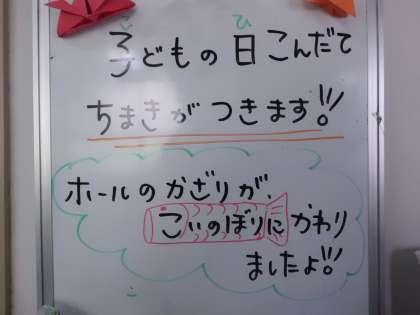 子どもの日こんだて
ちまきがつきます!!!
ホールのかざりが、
こいのぼりにかわり
ましたよ!!